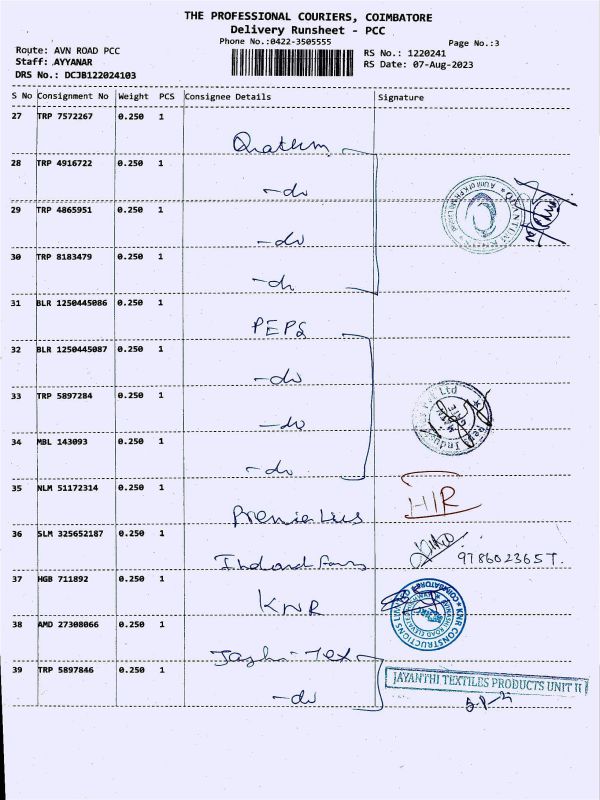 THE PROFESSIONAL COURIERS, COIMBATORE
Delivery Runsheet - PCC
Phone No.:0422-3505555
Page No.:3
Route: AVN ROAD PCC
RS No.: 1220241
Staff: AYYANAR
RS Date: 07-Aug-2023
DRS No.: DCJB122024103
S No Consignment No Weight PCS Consignee Details Signature
27 TRP 7572267 0.250 1
28 TRP 4916722 0.250 1
-do
29 TRP 4865951 0.250 1
-do
30 TRP 8183479 0.250 1
-do
31 BLR 1250445086 0.250 1
PEPS
32 BLR 1250445087 0.250 1
-do
33 TRP 5897284 0.250 1
-do
34 MBL 143093 0.250 1
-do
35 NLM 51172314 0.250 1
HIR
36 SLM 325652187 0.250 1
37 HGB 711892 0.250 1
KNR
KNR CONSTRUCTIONS
38 AMD 27308066 0.250 1
39 TRP 5897846 0.250 1
-do
JAYANTHI TEXTILES PRODUCTS UNIT II